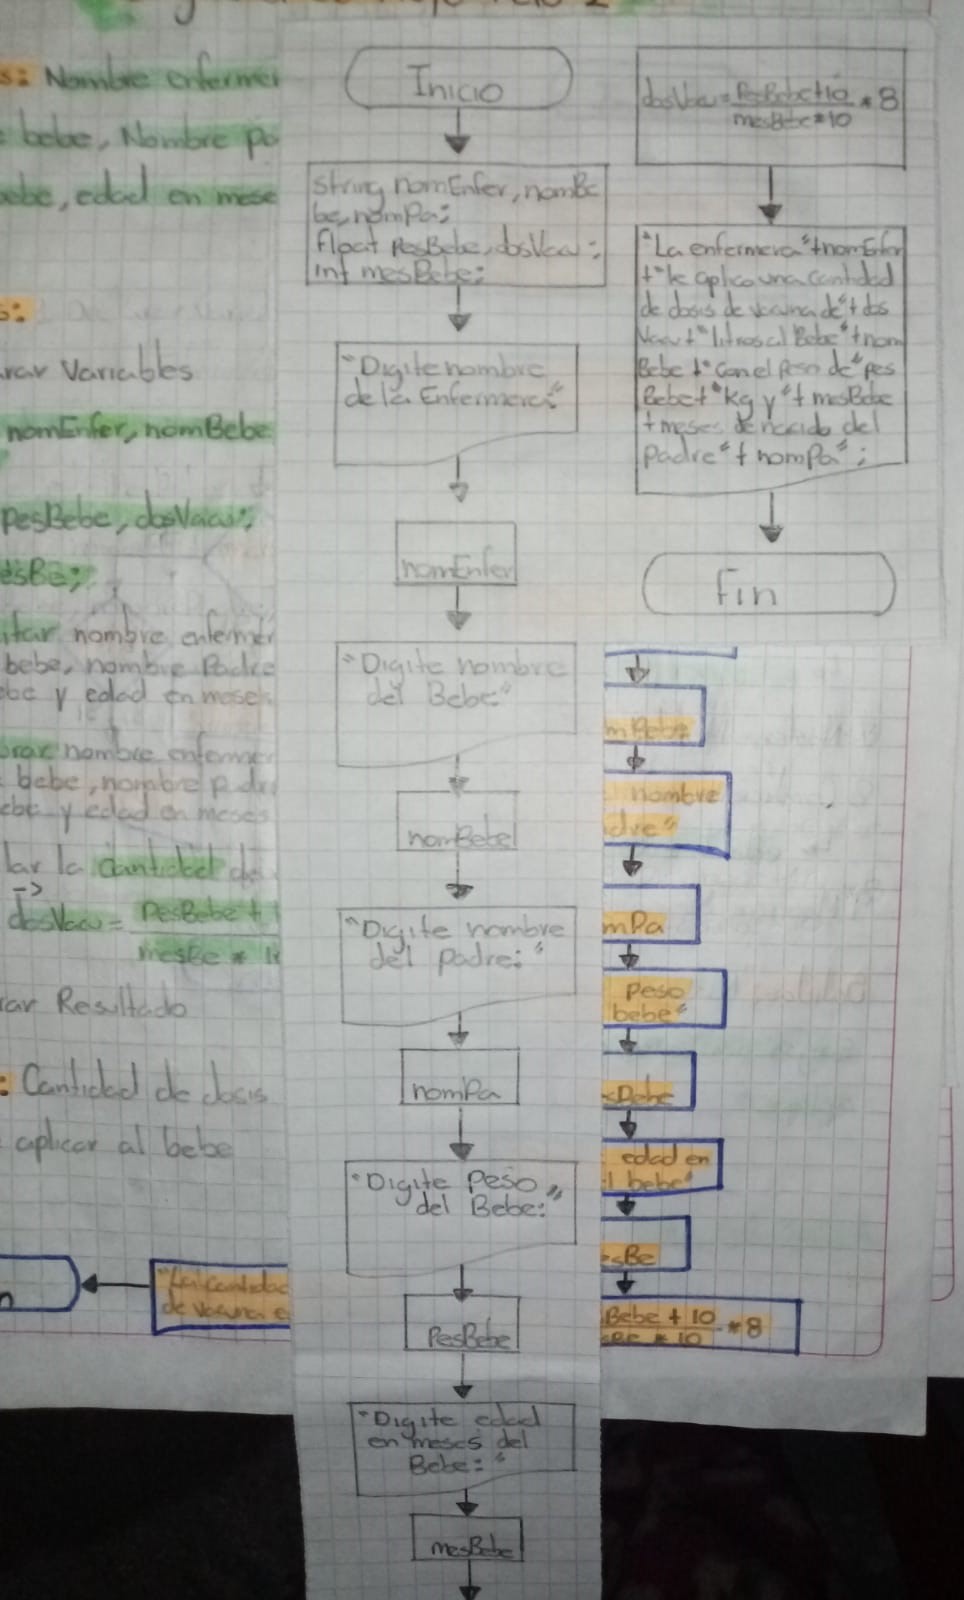 s: Nombre enfermer
bebe, Nombre pa
bebe, edad en mese
s:
rar Variables
nomEnfer, nomBebe
pesBebe, dosVacu;
esBe;
itar nombre enfermer
bebe, nombre Padre
ebe y edad en meses
orar nombre enfermer
bebe, nombre padr
ebe y edad en meses
lar la cantidad de
->
dosVacu = PesBebe + 1
mesBe * 10
rar Resultado
: Cantidad de dosis
aplicar al bebe
"La cantidad
de vacuna e
Inicio
String nomEnfer, nomBe
be, nomPa;
float PesBebe, dosVacu;
int mesBebe;
"Digite nombre
de la Enfermera:"
nomEnfer
"Digite nombre
del Bebe"
nomBebe
"Digite nombre
del padre:"
nomPa
"Digite Peso
del Bebe:"
PesBebe
"Digite edad
en meses del
Bebe:"
mesBebe
dosVacu = PesBebe+10
mesBebe*10 * 8
"La enfermera" + nomEnfer
+ "le aplico una cantidad
de dosis de vacuna de" + dos
Vacu + "litros al Bebe" + nom
Bebe + "con el peso de" pes
Bebe + "kg y" + mesBebe
+ meses de nacido del
padre" + nomPa";
Fin
mBebe
nombre
dre"
mPa
Peso
bebe"
edad en
l bebe"
sBe
Bebe + 10 * 8
sBe * 10